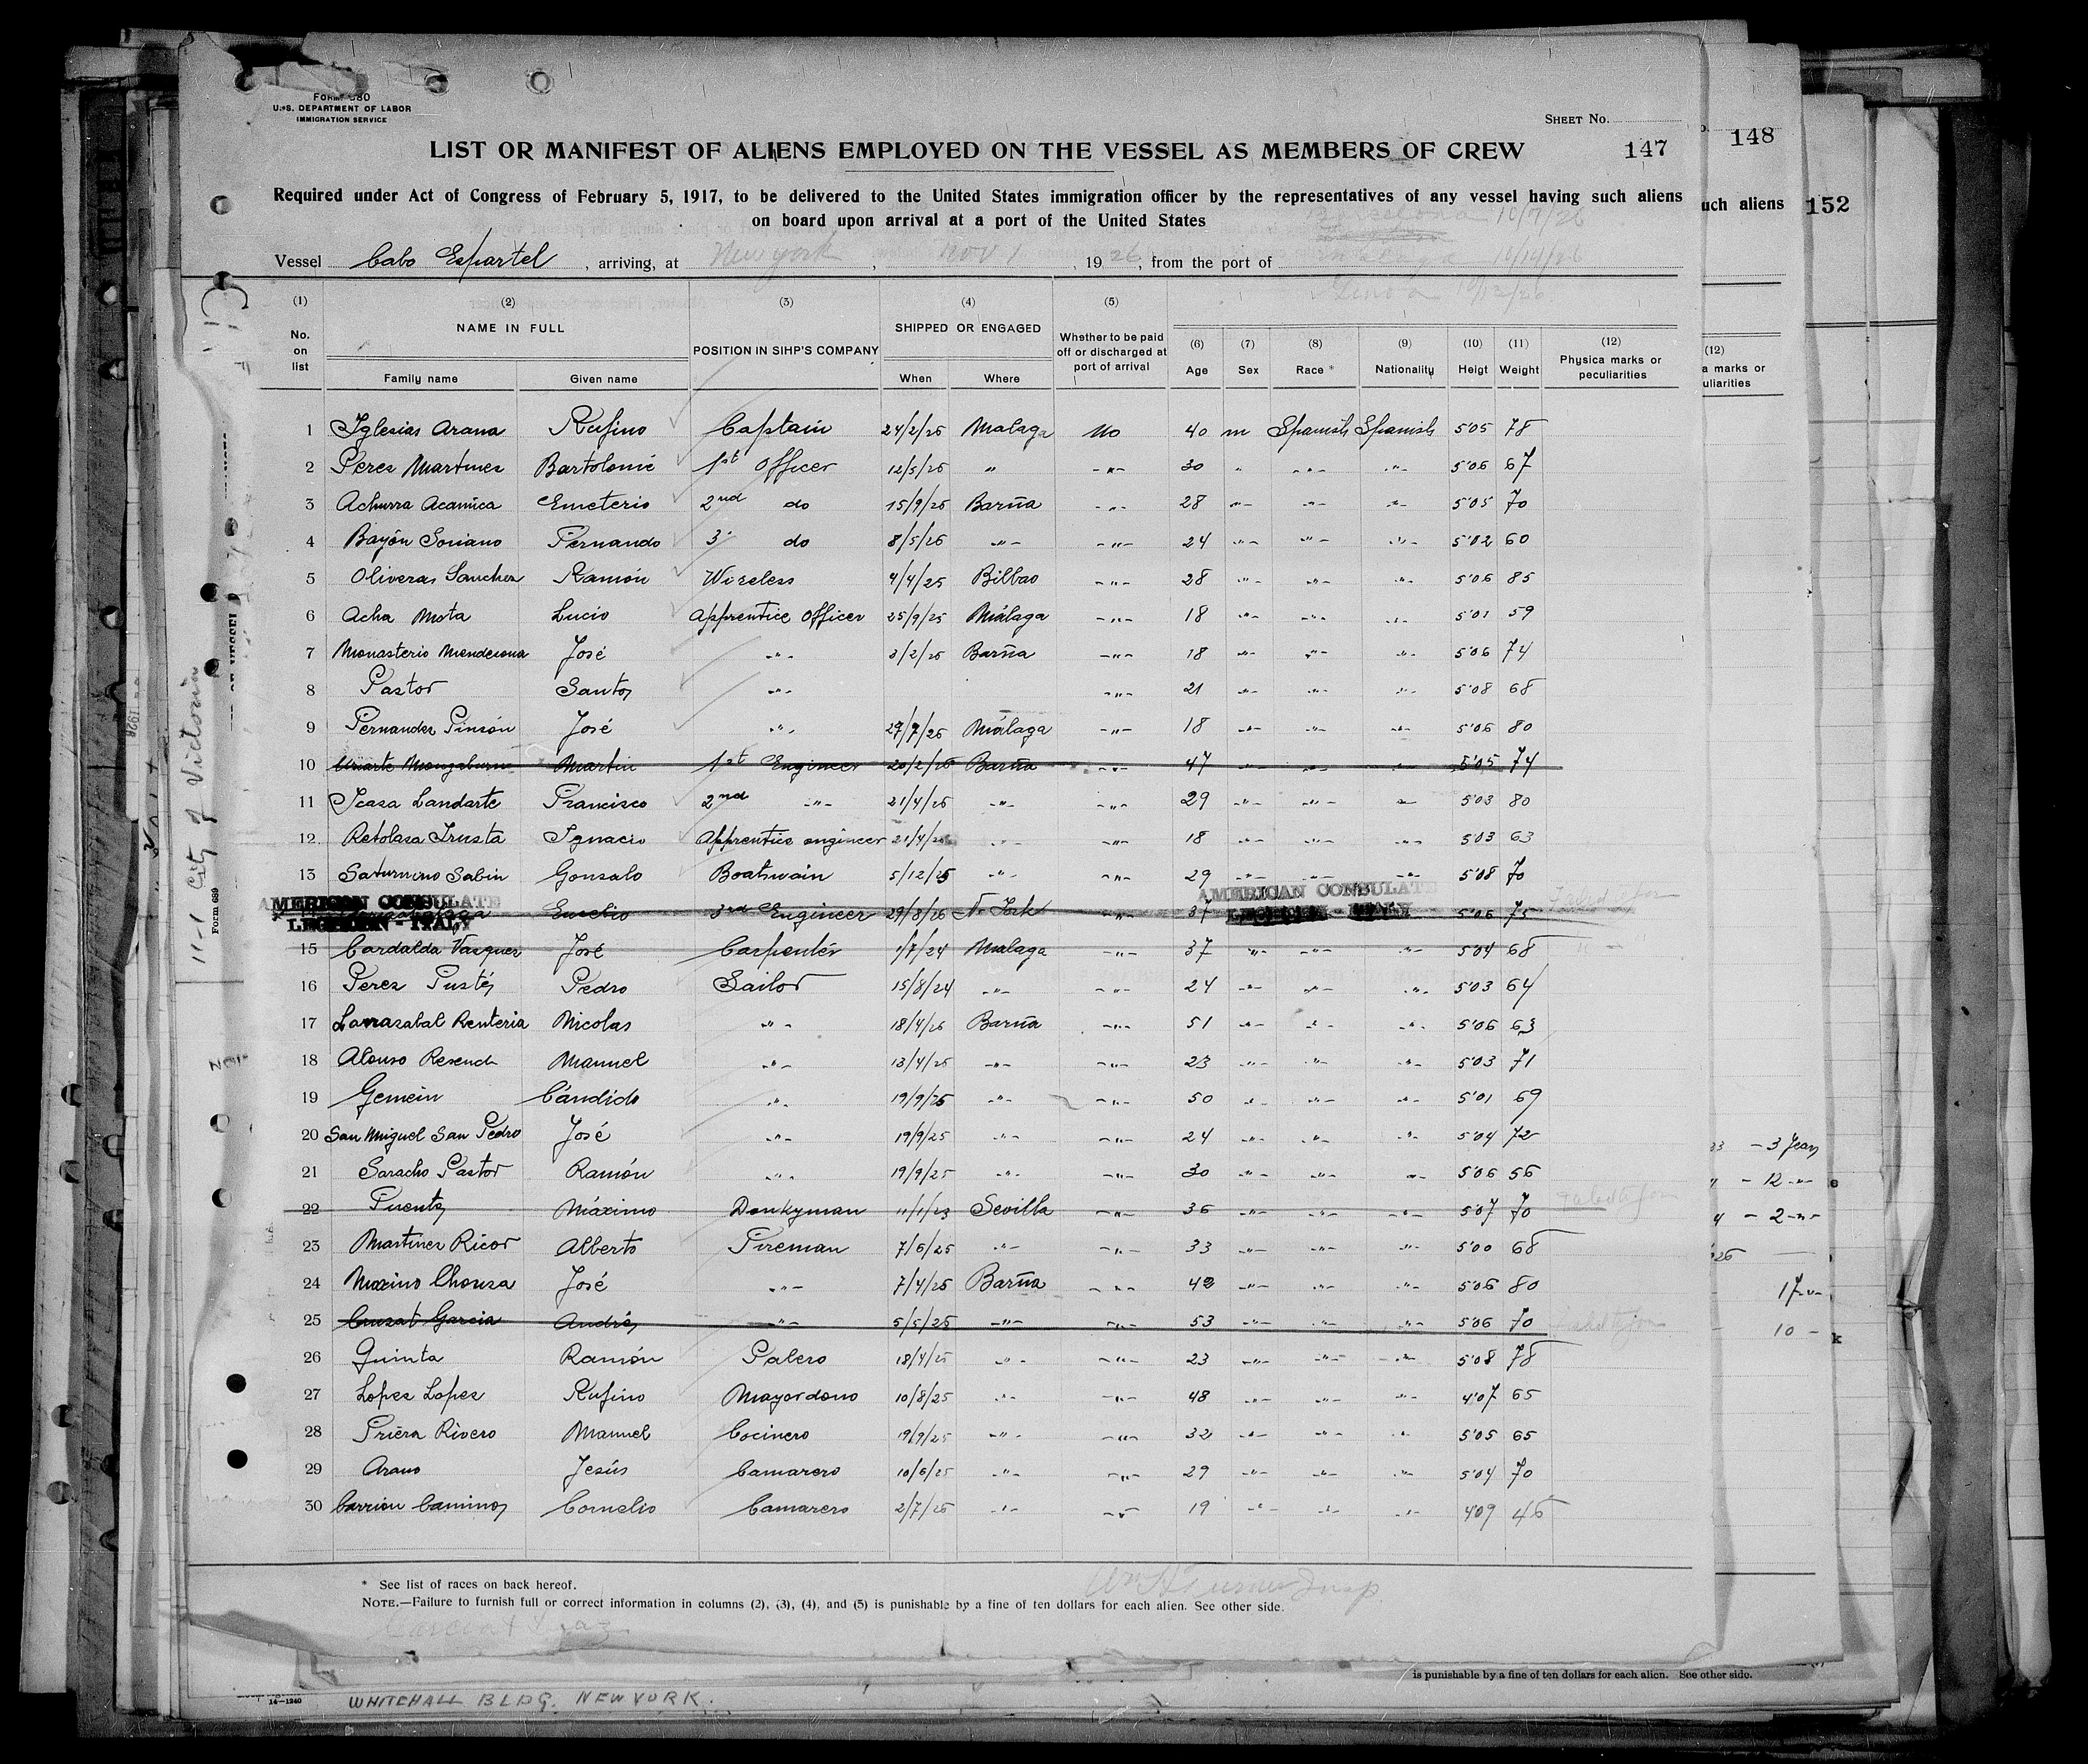 FORM 680
U. S. DEPARTMENT OF LABOR
IMMIGRATION SERVICE
SHEET No.
147
148
152
LIST OR MANIFEST OF ALIENS EMPLOYED ON THE VESSEL AS MEMBERS OF CREW
Required under Act of Congress of February 5, 1917, to be delivered to the United States immigration officer by the representatives of any vessel having such aliens
on board upon arrival at a port of the United States
uch aliens
Barcelona 10/7/26
Vessel Cabo Espartel, arriving, at New York, Nov 1, 1926, from the port of Malaga 10/14/26
Genoa 10/12/26
(1) (2) (3) (4) (5) (6) (7) (8) (9) (10) (11) (12)
No. on list NAME IN FULL Family name Given name POSITION IN SIHP'S COMPANY SHIPPED OR ENGAGED When Where Whether to be paid off or discharged at port of arrival Age Sex Race * Nationality Heigt Weight Physica marks or peculiarities
(12)
a marks or
uliarities
1 Iglesias Arana Rufino Captain 24/2/26 Malaga No 40 m Spanish Spanish 5'05 78
2 Perez Martinez Bartolomé 1st Officer 12/5/26 " -"- 30 " -"- -"- 5'06 67
3 Achurra Acamica Emeterio 2nd do 15/9/26 Barña -"- 28 -"- -"- -"- 5'05 70
4 Bayón Soriano Fernando 3º do 8/5/26 -"- -"- 24 -"- -"- -"- 5'02 60
5 Oliveras Sanchez Ramón Wireless 4/4/25 Bilbao -"- 28 -"- -"- -"- 5'06 85
6 Acha Mota Lucio Apprentice Officer 25/9/25 Málaga -"- 18 -"- -"- -"- 5'01 59
7 Monasterio Mendezona José -"- 3/2/26 Barña -"- 18 -"- -"- -"- 5'06 74
8 Pastor Santos -"- -"- 21 -"- -"- -"- 5'08 68
9 Fernandez Pinsón José -"- 27/7/26 Málaga -"- 18 -"- -"- -"- 5'06 80
10 Uriarte Martin 1st Engineer 20/2/26 Barña -"- 47 5'05 74
11 Icasa Landarte Francisco 2nd -"- 21/4/26 -"- -"- 29 -"- -"- -"- 5'03 80
12 Retolaza Irusta Ignacio Apprentice engineer 21/4/26 -"- -"- 18 -"- -"- -"- 5'03 63
13 Saturnino Sabin Gonzalo Boatswain 5/12/25 -"- -"- 29 -"- -"- -"- 5'08 70
AMERICAN CONSULATE
LEGHORN - ITALY
Eusebio 3rd Engineer 29/8/26 N. York -"- 37 5'06 75 Failed to join
AMERICAN CONSULATE
LEGHORN - ITALY
15 Cardalda Vazquez José Carpenter 1/7/24 Malaga -"- 37 -"- -"- -"- 5'04 68 " -
16 Perez Fustés Pedro Sailor 15/8/24 -"- -"- 24 -"- -"- -"- 5'03 64
17 Larrazabal Renteria Nicolas -"- 18/4/26 Barña -"- 51 -"- -"- -"- 5'06 63
18 Alonso Resende Manuel -"- 13/4/26 -"- -"- 23 -"- -"- -"- 5'03 71
19 Gemein Cándido -"- 19/9/25 -"- -"- 50 -"- -"- -"- 5'01 69
20 San Miguel San Pedro José -"- 19/9/25 -"- -"- 24 -"- -"- -"- 5'04 72
21 Saracho Pastor Ramón -"- 19/9/25 -"- -"- 30 -"- -"- -"- 5'06 56
22 Fuentes Máximo Donkyman 11/1/23 Sevilla -"- 36 -"- -"- -"- 5'07 70 Failed to join
23 Martinez Ricor Alberto Fireman 7/6/25 -"- -"- 33 -"- -"- -"- 5'00 68
24 Moxino Chouza José -"- 7/4/26 Barña -"- 42 -"- -"- -"- 5'06 80
25 Cruzat Garcia Andrés -"- 5/5/26 -"- -"- 53 -"- -"- -"- 5'06 70 Failed to join
26 Quinta Ramón Palero 18/4/25 -"- -"- 23 -"- -"- -"- 5'08 78
27 Lopez Lopez Rufino Mayordomo 10/8/25 -"- -"- 48 -"- -"- -"- 4'07 65
28 Manuel Cocinero 19/9/25 -"- -"- 32 -"- -"- -"- 5'05 65
29 Arano Jesús Camarero 10/6/25 -"- -"- 29 -"- -"- -"- 5'04 70
30 Carrión Caminos Cornelio Camarero 2/7/26 -"- -"- 19 -"- -"- -"- 4'09 46
23 - 3 Years
" - 12 -"-
4 - 2 -"-
26
17 -"-
10 -
* See list of races on back hereof.
NOTE.—Failure to furnish full or correct information in columns (2), (3), (4), and (5) is punishable by a fine of ten dollars for each alien. See other side.
Wm H Turner Insp.
Garcia & Diaz
is punishable by a fine of ten dollars for each alien. See other side.
14—1240
WHITEHALL BLDG. NEW YORK.
11-1 City of Victoria
Form 689